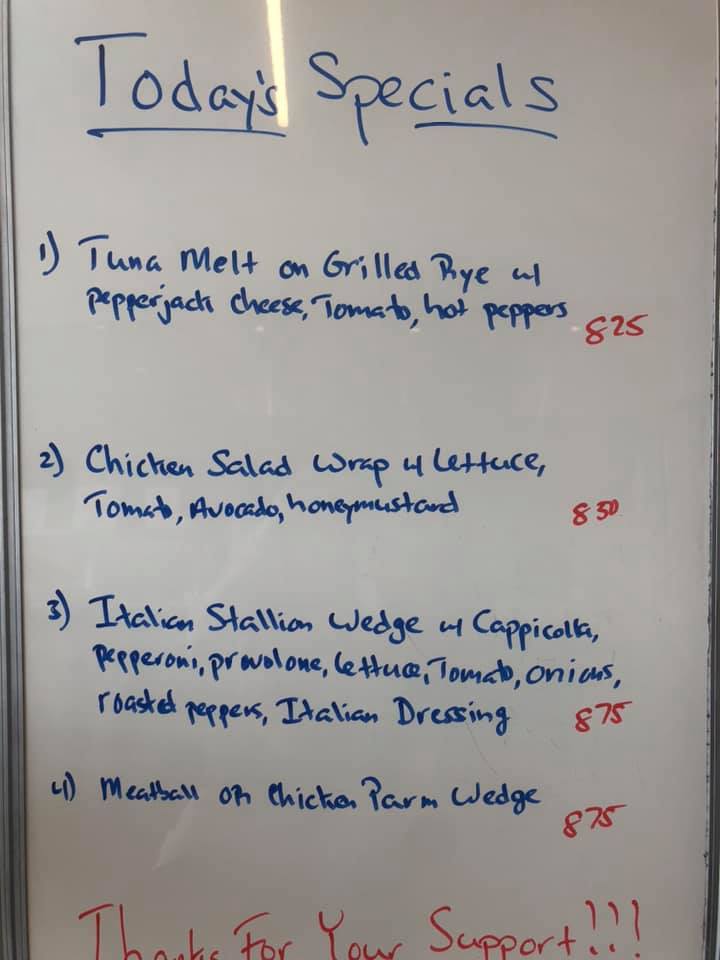 Today's Specials
1) Tuna Melt on Grilled Rye w/
pepperjack cheese, Tomato, hot peppers 825
2) Chicken Salad Wrap w/ Lettuce,
Tomato, Avocado, honeymustard 850
3) Italian Stallion Wedge w/ Cappicolla,
pepperoni, provolone, lettuce, Tomato, onions,
roasted peppers, Italian Dressing 875
4) Meatball or Chicken Parm Wedge
875
Thanks For Your Support!!!